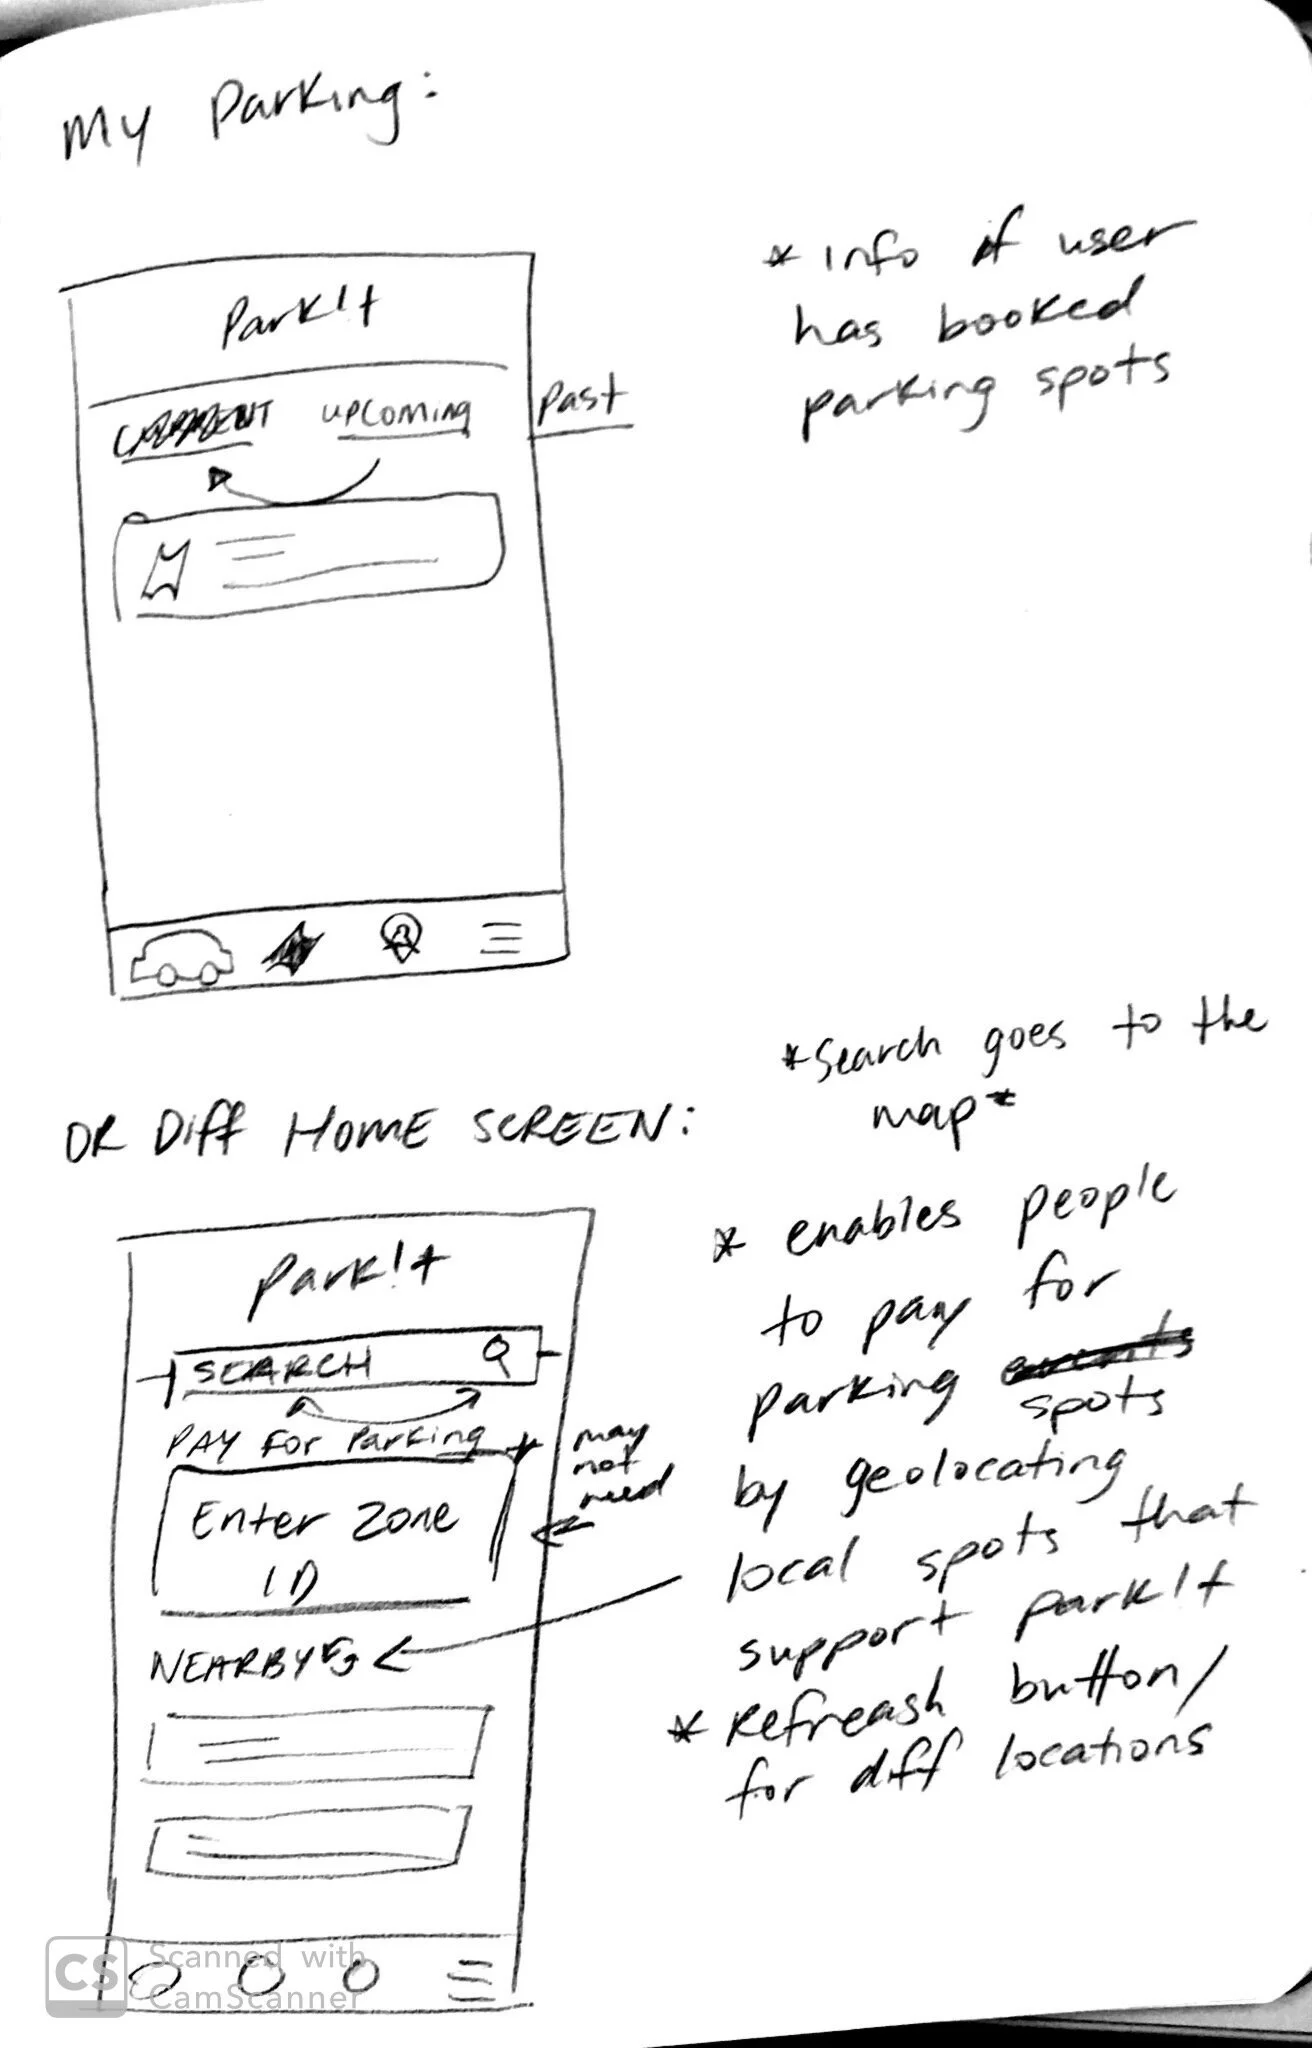 My Parking:
* info if user
has booked
parking spots
Park!t
CURRENT upcoming Past
*Search goes to the
map*
OR Diff HOME SCREEN:
* enables people
to pay for
parking events
spots
by geolocating
local spots that
support park!t
* Refreash button/
for diff locations
Park!t
SEARCH
PAY For Parking
may
not
need
Enter Zone
ID
NEARBY
CS Scanned with
CamScanner